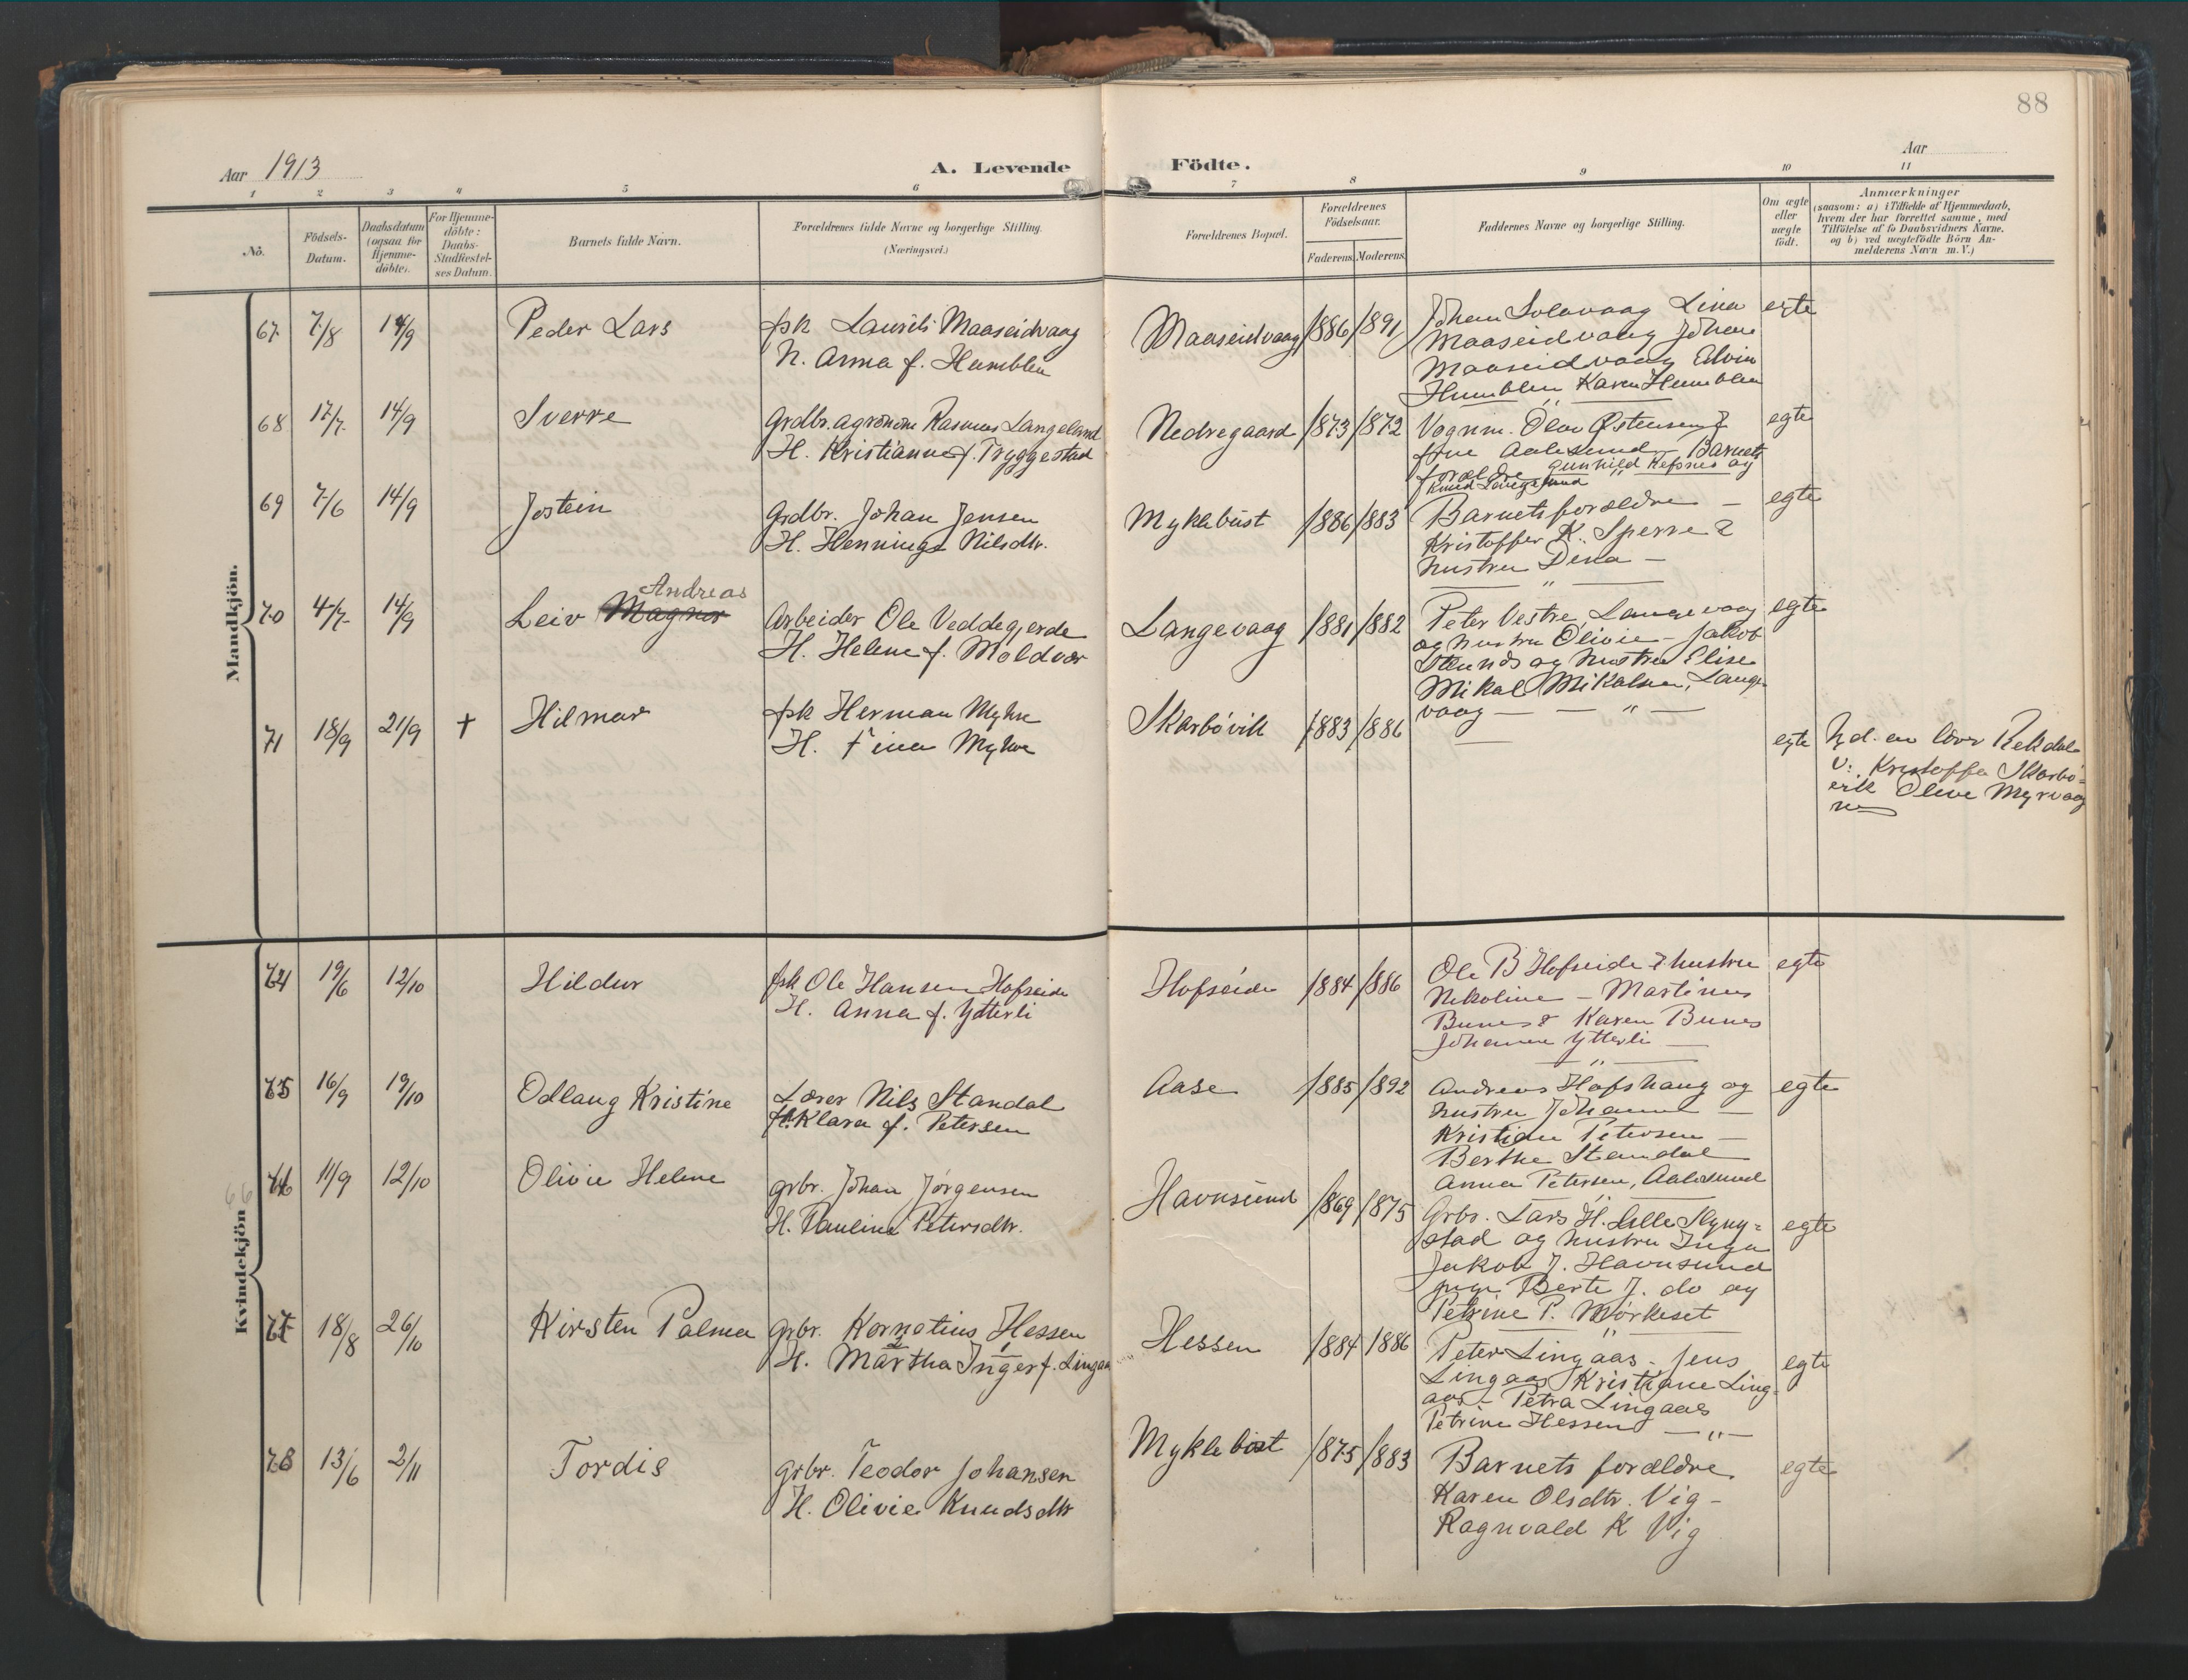 88
Aar 1913
A. Levende
Födte.
Aar
1 2 3 4 5 6 7 8 9 10 11
No.
Födsels-
Datum.
Daabsdatum
(ogsaa for
Hjemme-
döbte).
For Hjemme-
döbte:
Daabs-
Stadfæstel-
ses Datum.
Barnets fulde Navn.
Forældrenes fulde Navne og borgerlige Stilling.
(Næringsvei.)
Forældrenes Bopæl.
Forældrenes
Födselsaar.
Faderens Moderens
Faddernes Navne og borgerlige Stilling.
Om ægte
eller
uægte
født.
Anmærkninger
(saasom: a) i Tilfælde af Hjemmedaab,
hvem der har forrettet samme, med
Tilföielse af to Daabsvidners Navne.
og b) ved uægtefödte Börn An-
melderens Navn m. V.)
Mandkjön.
67 7/8 14/9 Peder Lars
fsk Laurits Maaseidvaag
H. Anna f. Humblen
Maaseidvaag 1886 1891
Johan Solavaag Lina
Maaseidvaag Johan
Maaseidvaag Edvin
Humblen Karen Humblen
egte
68 17/7 14/9 Sverre
Grdbr. agronom Rasmus Langeland
H. Kristianna f. Tryggestad
Nedregaard 1873 1872
Vognm. Olav Østensen &
frue Aalesund - Barnets
forældre Gunhild Refsnes og
Knud Langeland
egte
69 7/6 14/9 Jostein
Grdbr. Johan Jensen
H. Henninge Nilsdtr.
Myklebust 1886 1883
Barnets forældre -
Kristoffer K. Sperre &
hustru Dina -
egte
70 4/7 14/9 Leiv Magnor Andreas
Arbeider Ole Veddegjerde
H. Helene f. Moldvær
Langevaag 1881 1882
Peter Vestre, Langevaag
og hustru Olivie - Jakob
og hustru Elise
Mikal Mikalsen, Lange-
vaag
egte
71 18/9 21/9 + Hilmar
fsk Herman Myhre
H. Fina Myhre
Skarbövik 1883 1886
egte
hjd. av lærer Rekdal
v. Kristoffer Skarbö-
vik Oline Myrvaag-
nes
Kvindekjön
66
74 19/6 12/10 Hildur
fsk Ole Hansen Hofseide
H. Anna f. Ytterli
Hofseide 1884 1886
Ole B Hofseide & hustru
Nikoline - Martinus
Bunes & Karen Bunes
Johanne Ytterli
egte
75 16/9 19/10 Odlaug Kristine
Lærer Nils Standal
H. Klara f. Petersen
Aase 1885 1892
Andreas Hofshaug og
hustru Johanne
Kristian Petersen -
Berthe Standal
Anna Petersen, Aalesund
egte
76 11/9 12/10 Olivie Helene
grbr. Johan Jørgensen
H. Pauline Petersdtr.
Havnsund 1869 1875
Grbr. Lars H. Lille Slyng-
stad og hustru Inga
Jakob J. Havnsund
pige Berte J. do og
Petrine P. Mörkeset
egte
77 18/8 26/10 Kirsten Palma
Grbr. Kornelius Hessen
H. Martha Inger f. Lingaas
Hessen 1884 1886
Peter Lingaas - Jens
Lingaas Kristiane Ling-
aas - Petra Lingaas
Petrine Hessen
egte
78 13/6 2/11 Tordis
grbr. Teodor Johansen
H. Olivie Knudsdtr
Myklebust 1875 1883
Barnets forældre.
Karen Olsdtr. Vig -
Ragnvald K Vig
egte